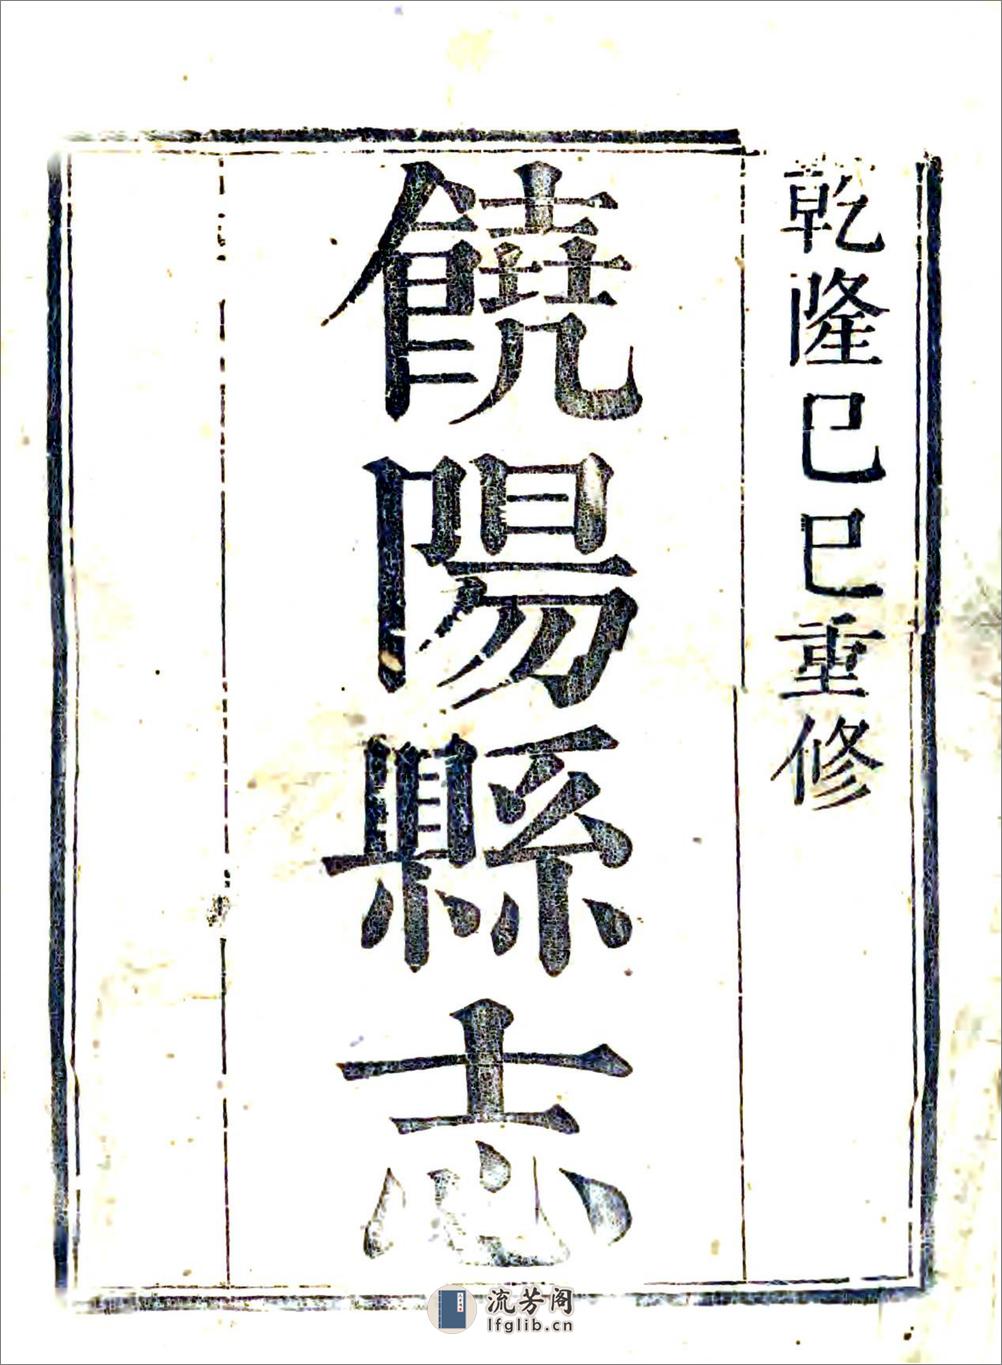 乾隆己巳重修
饒陽縣志
流芳阁
lfglib.cn